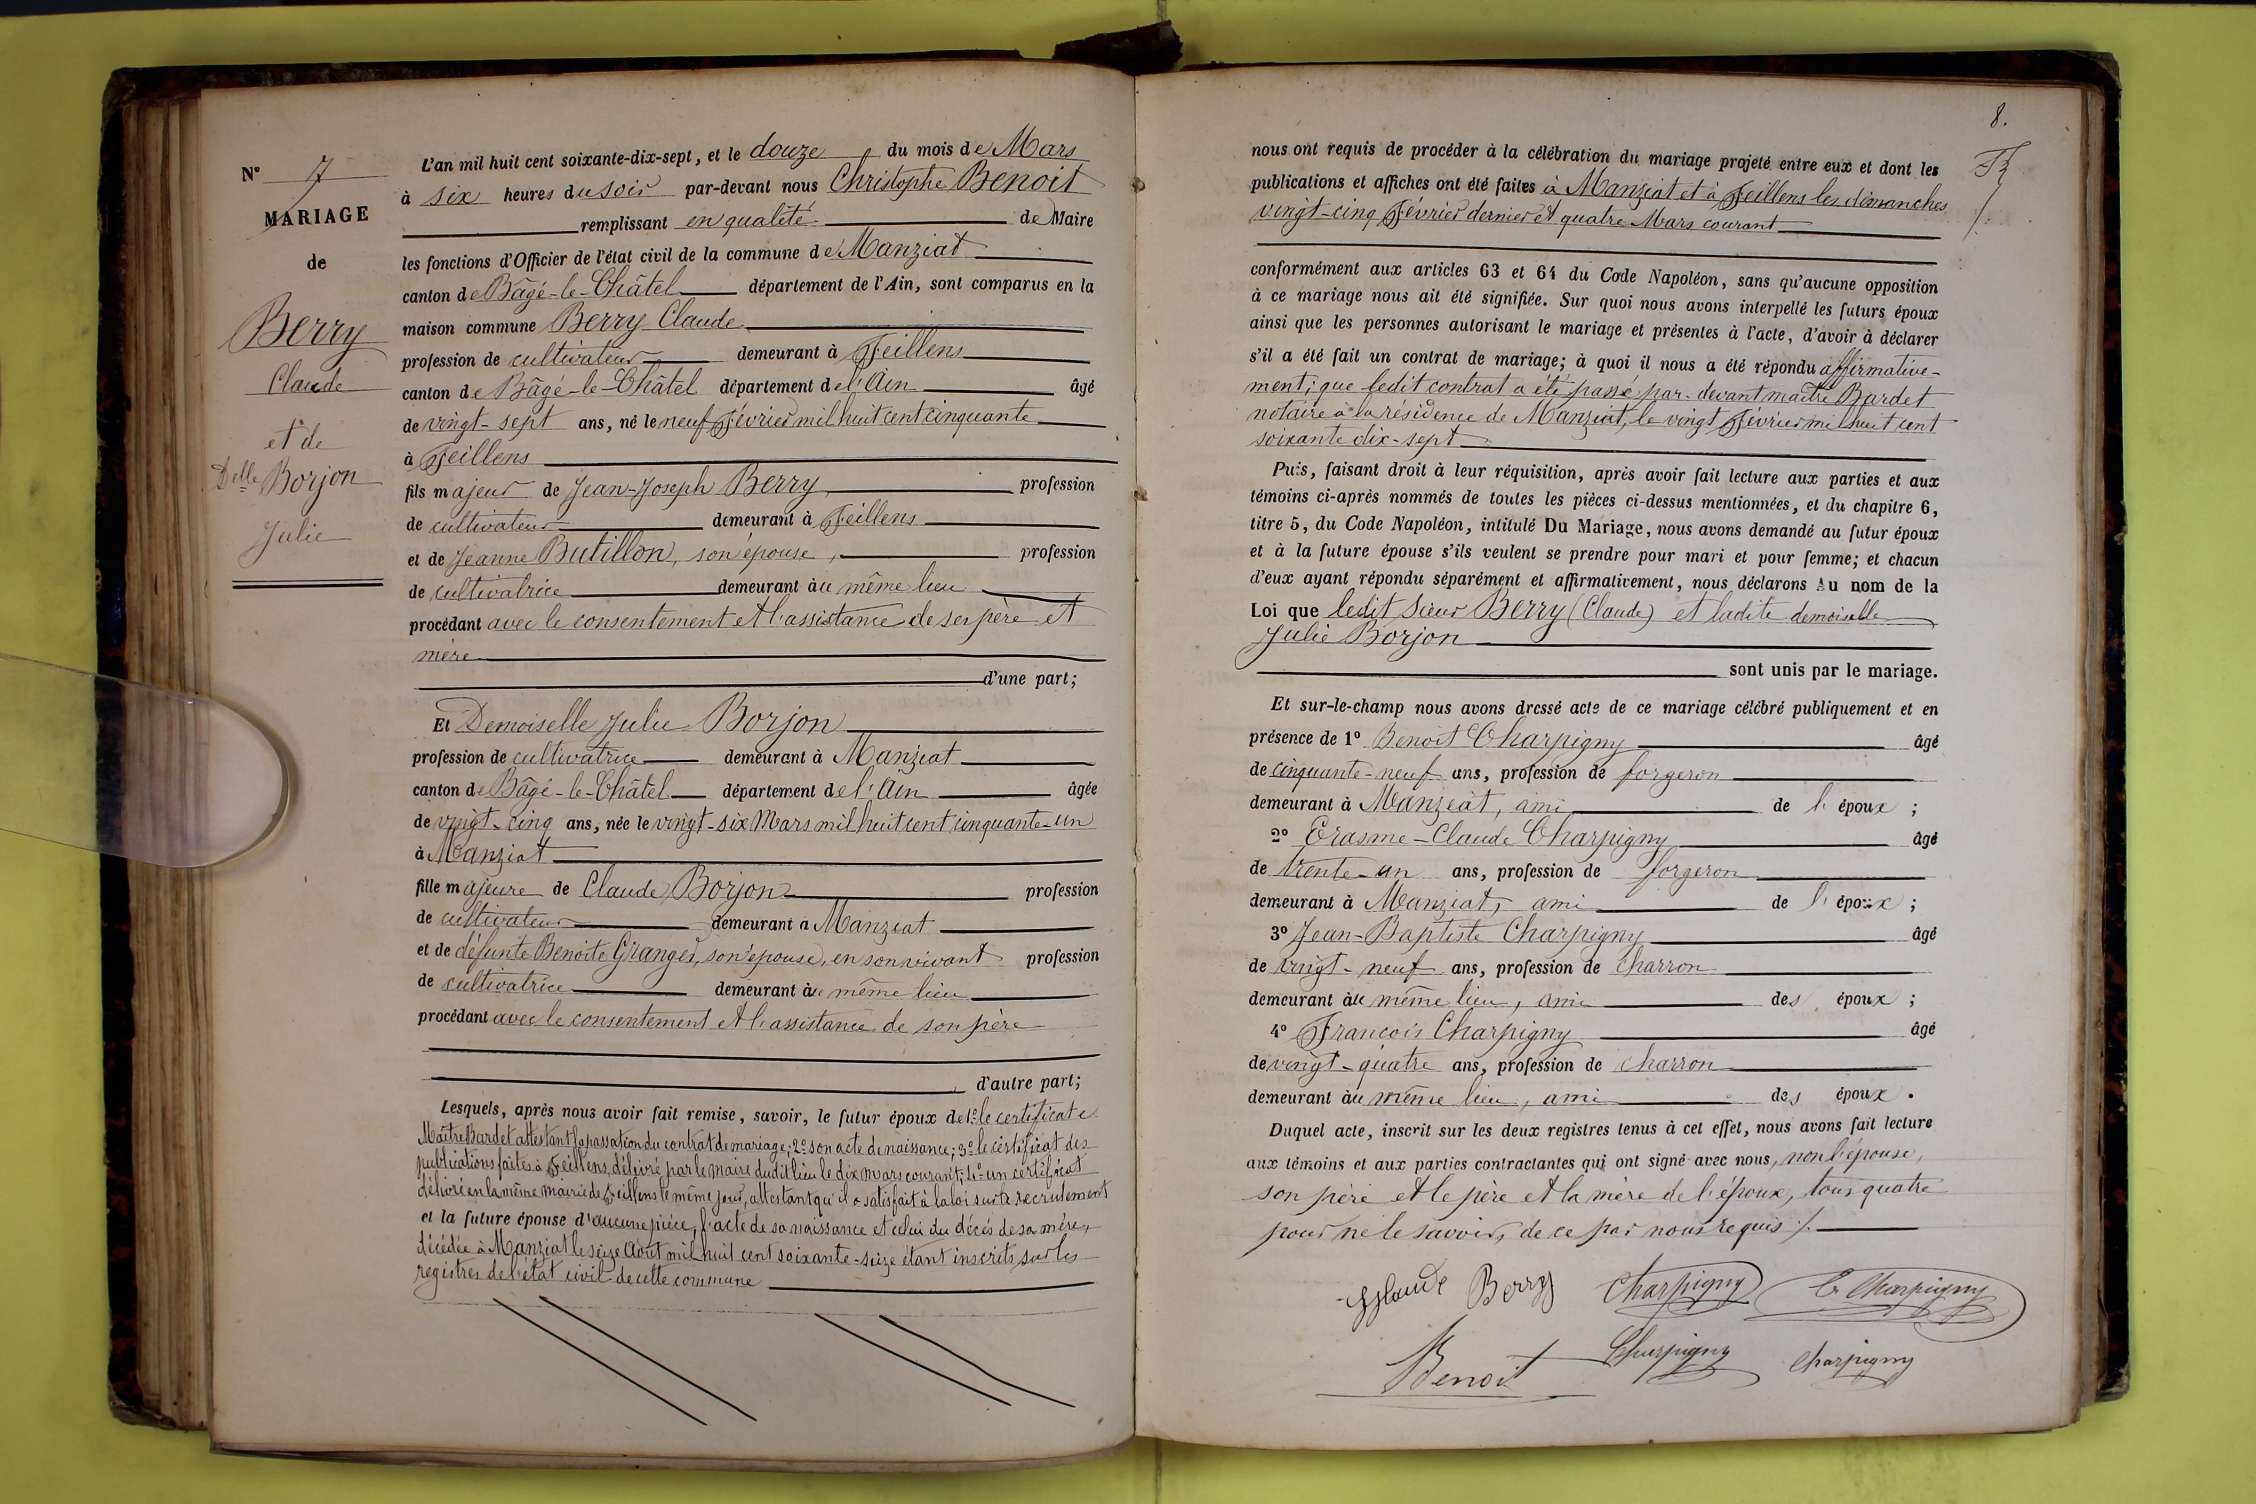 N° 7
MARIAGE
de
Berry
Claude
et de
Delle Borjon
Julie
L'an mil huit cent soixante-dix-sept, et le douze du mois de Mars
à six heures du soir par-devant nous Christophe Benoit
remplissant en qualité de Maire
les fonctions d'Officier de l'état civil de la commune de Manziat
canton de Bâgé-le-Châtel département de l'Ain, sont comparus en la
maison commune Berry Claude
profession de cultivateur demeurant à Feillens
canton de Bâgé-le-Châtel département de l'Ain âgé
de vingt-sept ans, né le neuf Février mil huit cent cinquante
à Feillens
fils majeur de Jean-Joseph Berry profession
de cultivateur demeurant à Feillens
et de Jeanne Butillon, son épouse, profession
de cultivatrice demeurant au même lieu
procédant avec le consentement et l'assistance de ses père et
mère
d'une part;
Et Demoiselle Julie Borjon
profession de cultivatrice demeurant à Manziat
canton de Bâgé-le-Châtel département de l'Ain âgée
de vingt-cinq ans, née le vingt-six Mars mil huit cent cinquante-un
à Manziat
fille majeure de Claude Borjon profession
de cultivateur demeurant à Manziat
et de défunte Benoite Granger, son épouse, en son vivant profession
de cultivatrice demeurant au même lieu
procédant avec le consentement et l'assistance de son père
d'autre part;
Lesquels, après nous avoir fait remise, savoir, le futur époux de 1° le certificat de
Maître Bardet attestant la passation du contrat de mariage; 2° son acte de naissance; 3° le certificat des
publications faites à Feillens, délivré par le maire dudit lieu le dix mars courant; 4° un certificat
délivré en la même mairie de Feillens le même jour, attestant qu'il a satisfait à la loi sur le recrutement
et la future épouse d'aucune pièce, l'acte de sa naissance et celui du décès de sa mère,
décédée à Manziat le seize Août mil huit cent soixante-seize étant inscrits sur les
registres de l'état civil de cette commune
8.
nous ont requis de procéder à la célébration du mariage projeté entre eux et dont les
publications et affiches ont été faites à Manziat et à Feillens les dimanches
vingt-cinq Février dernier et quatre Mars courant
conformément aux articles 63 et 64 du Code Napoléon, sans qu'aucune opposition
à ce mariage nous ait été signifiée. Sur quoi nous avons interpellé les futurs époux
ainsi que les personnes autorisant le mariage et présentes à l'acte, d'avoir à déclarer
s'il a été fait un contrat de mariage; à quoi il nous a été répondu affirmative-
ment; que ledit contrat a été passé par-devant maître Bardet
notaire à la résidence de Manziat, le vingt Février mil huit cent
soixante dix-sept
Puis, faisant droit à leur réquisition, après avoir fait lecture aux parties et aux
témoins ci-après nommés de toutes les pièces ci-dessus mentionnées, et du chapitre 6,
titre 5, du Code Napoléon, intitulé Du Mariage, nous avons demandé au futur époux
et à la future épouse s'ils veulent se prendre pour mari et pour femme; et chacun
d'eux ayant répondu séparément et affirmativement, nous déclarons Au nom de la
Loi que ledit sieur Berry (Claude) et ladite demoiselle
Julie Borjon
sont unis par le mariage.
Et sur-le-champ nous avons dressé acte de ce mariage célébré publiquement et en
présence de 1° Benoit Charpigny âgé
de cinquante-neuf ans, profession de forgeron
demeurant à Manziat, ami de l'époux;
2° Erasme-Claude Charpigny âgé
de trente-un ans, profession de forgeron
demeurant à Manziat, ami de l'époux;
3° Jean-Baptiste Charpigny âgé
de vingt-neuf ans, profession de charron
demeurant au même lieu, ami des époux;
4° François Charpigny âgé
de vingt-quatre ans, profession de charron
demeurant au même lieu, ami des époux.
Duquel acte, inscrit sur les deux registres tenus à cet effet, nous avons fait lecture
aux témoins et aux parties contractantes qui ont signé avec nous, non l'épouse,
son père et le père et la mère de l'époux, tous quatre
pour ne le savoir, de ce par nous requis
Glaude Berry Charpigny C Charpigny
Benoit Charpigny Charpigny